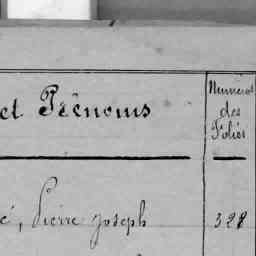 et Prénoms
Numéros
des
Folios
é, Pierre Joseph
328